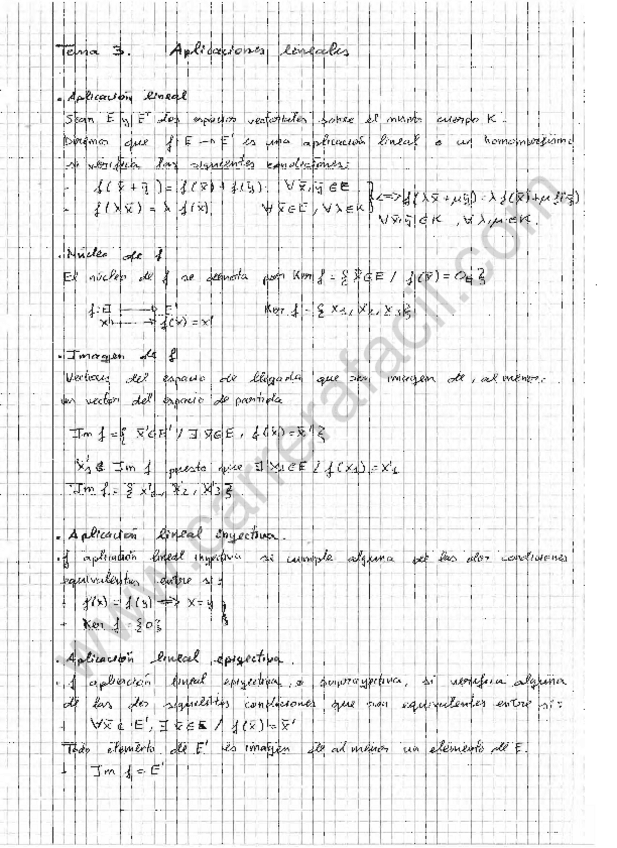 Tema 3. Aplicaciones lineales
• Aplicación lineal
Sean E y E' dos espacios vectoriales sobre el mismo cuerpo K.
Diremos que f: E → E' es una aplicación lineal o un homomorfismo
si verifica las siguientes condiciones:
- f(x̄ + ȳ) = f(x̄) + f(ȳ). ∀x̄, ȳ ∈ E } <=> f(λx̄ + μȳ) = λf(x̄) + μf(ȳ)
- f(λx̄) = λ f(x̄). ∀x̄ ∈ E, ∀λ ∈ K } ∀x̄, ȳ ∈ K, ∀λ, μ ∈ K.
• Núcleo de f
El núcleo de f se denota por Ker f = { x̄ ∈ E / f(x̄) = 0E' }
f: E → E' Ker f = { x1, x2, x3 }
x → f(x) = x'
• Imagen de f
Vectores del espacio de llegada que son imagen de, al menos,
un vector del espacio de partida
Im f = { x̄' ∈ E' / ∃ x̄ ∈ E, f(x̄) = x̄' }
x'1 ∈ Im f puesto que ∃ x1 ∈ E / f(x1) = x'1
Im f = { x'1, x'2, x'3 }
• Aplicación lineal inyectiva.
• f aplicación lineal inyectiva si cumple alguna de las dos condiciones
equivalentes entre sí:
+ f(x) = f(y) => x = y }
+ Ker f = {0}
• Aplicación lineal epiyectiva.
• f aplicación lineal epiyectiva, o suprayectiva, si verifica alguna
de las dos siguientes condiciones que son equivalentes entre sí:
+ ∀x̄' ∈ E', ∃ x̄ ∈ E / f(x̄) = x̄'
Todo elemento de E' es imagen de al menos un elemento de E.
+ Im f = E'
www.carrerafacil.com